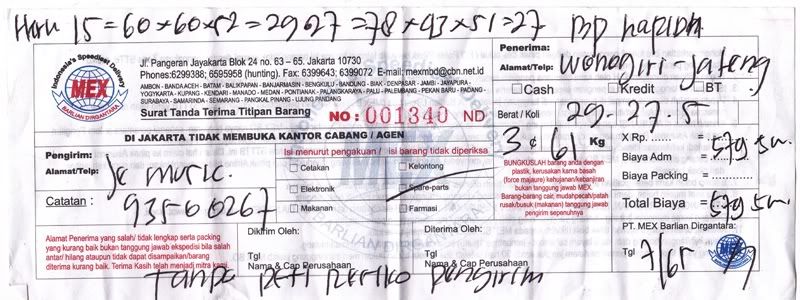 15 = 60 x 60 x 52 = 29 27 = 78 x 43 x 51 = 27
Indonesia's Speediest Delivery
MEX
BARLIAN DIRGANTARA
Jl. Pangeran Jayakarta Blok 24 no. 63 – 65. Jakarta 10730
Phones:6299388; 6595958 (hunting). Fax: 6399643; 6399072 E-mail: mexmbd@cbn.net.id
AMBON - BANDAACEH - BATAM - BALIKPAPAN - BANJARMASIN - BENGKULU - BANDUNG - BIAK - DENPASAR - JAMBI - JAYAPURA -
YOGYAKARTA - KUPANG - KENDARI - MANADO - MEDAN - PONTIANAK - PALANGKARAYA - PALU - PALEMBANG - PEKAN BARU - PADANG -
SURABAYA - SAMARINDA - SEMARANG - PANGKAL PINANG - UJUNG PANDANG
Surat Tanda Terima Titipan Barang
NO: 001340 ND
Penerima:
Bp
Alamat/Telp: Wonogiri - Jateng
Cash Kredit BT
Berat / Koli 29 - 27 - 5
DI JAKARTA TIDAK MEMBUKA KANTOR CABANG / AGEN
Pengirim:
Alamat/Telp: Jc music.
Catatan : 93500267
Isi menurut pengakuan / isi barang tidak diperiksa
Cetakan Kelontong
Elektronik Spare-parts
Makanan Farmasi
3 ¢ 61 Kg
BUNGKUSLAH barang anda dengan
plastik, kerusakan kama basah
(force majaure) kehujanan/kebanjiran
bukan tanggung jawab MEX
Barang-barang cair, mudah/pecah/patah
rusak/busuk (makanan) tanggung jawab
pengirim sepenuhnya
X Rp. ...... =
Biaya Adm = 579 500.
Biaya Packing =
Total Biaya = 579 500.
Alamat Penerima yang salah/ tidak lengkap serta packing
yang kurang baik bukan tanggung jawab ekspedisi bila salah
antar/ hilang ataupun tidak dapat disampaikan/barang
diterima kurang baik. Terima Kasih telah menjadi mitra kami.
Dikirim Oleh:
Tgl
Nama & Cap Perusahaan
Diterima Oleh:
Tgl
Nama & Cap Perusahaan
PT. MEX Barlian Dirgantara:
Tgl
MEX
tanpa peti pengirim